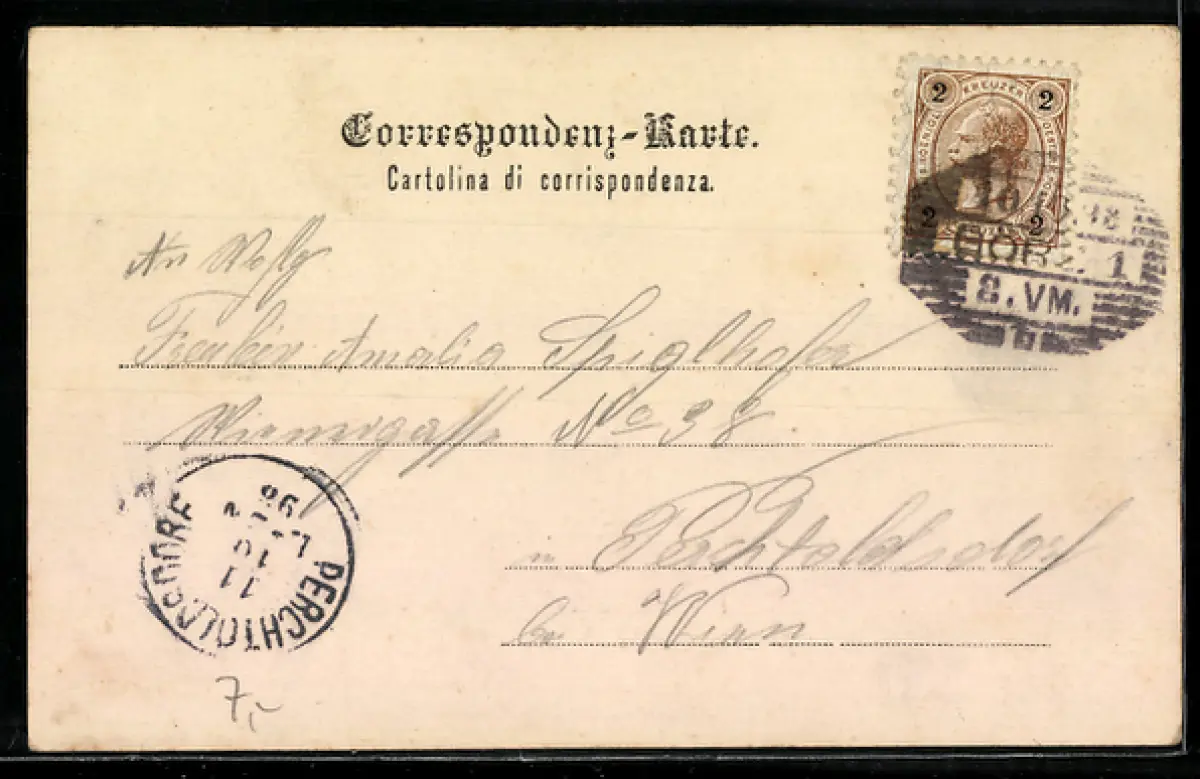 Correspondenz-Karte.
Cartolina di corrispondenza.
2 KREUZER 2
2 2
GÖRZ 1
8. VM.
An Wolg
Freulein Amalia Spiglhofer
Wienergasse No 38.
in Perchtoldsdorf
bei Wien
PERCHTOLDSDORF
11
10
98
7,-